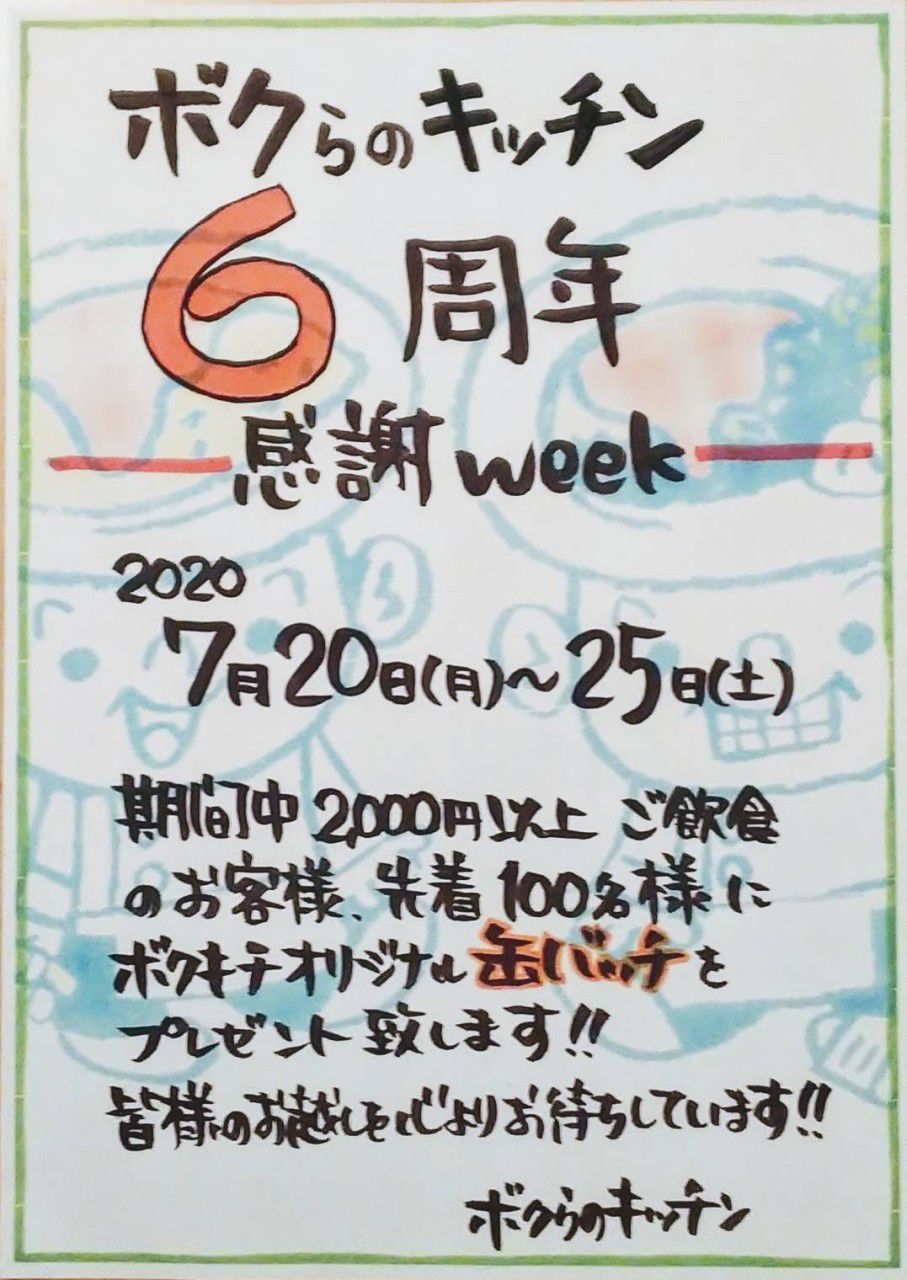 ボクらのキッチン
6周年
感謝week
2020
7月20日(月)～25日(土)
期間中 2,000円以上 ご飲食
のお客様、先着100名様に
ボクキチオリジナル缶バッチを
プレゼント致します!!
皆様のお越しを心よりお待ちしています!!
ボクらのキッチン